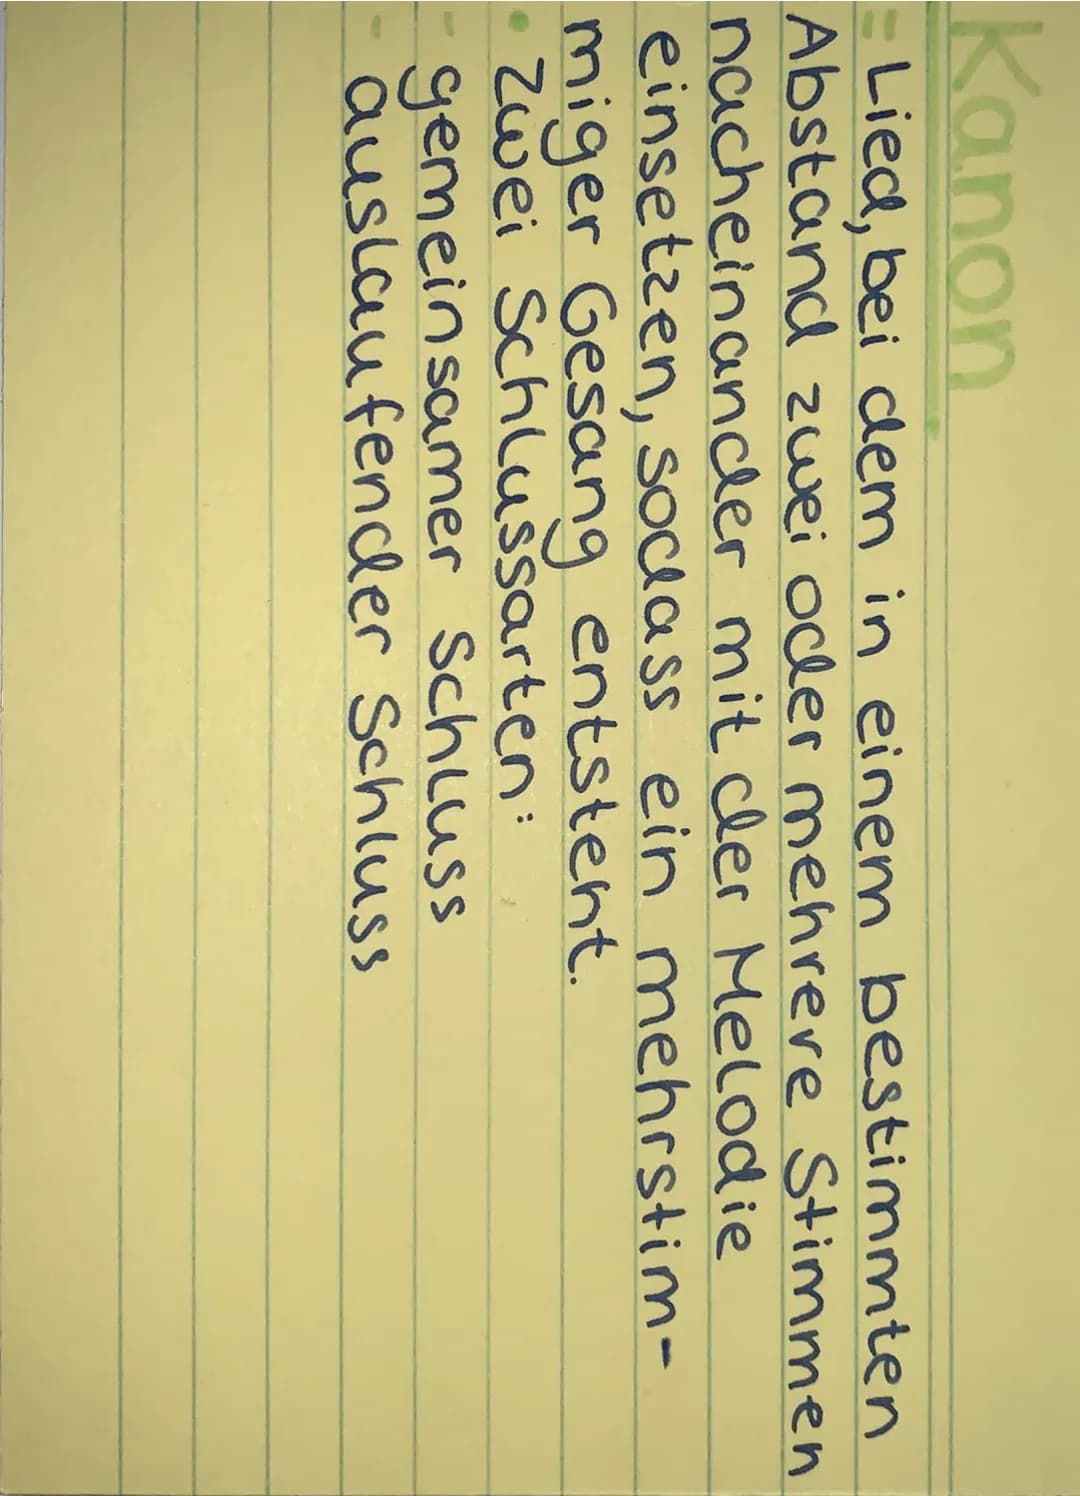 Kanon
= Lied, bei dem in einem bestimmten
Abstand zwei oder mehrere Stimmen
nacheinander mit der Melodie
einsetzen, sodass ein mehrstim-
miger Gesang entsteht.
• Zwei Schlussarten:
- gemeinsamer Schluss
- auslaufender Schluss